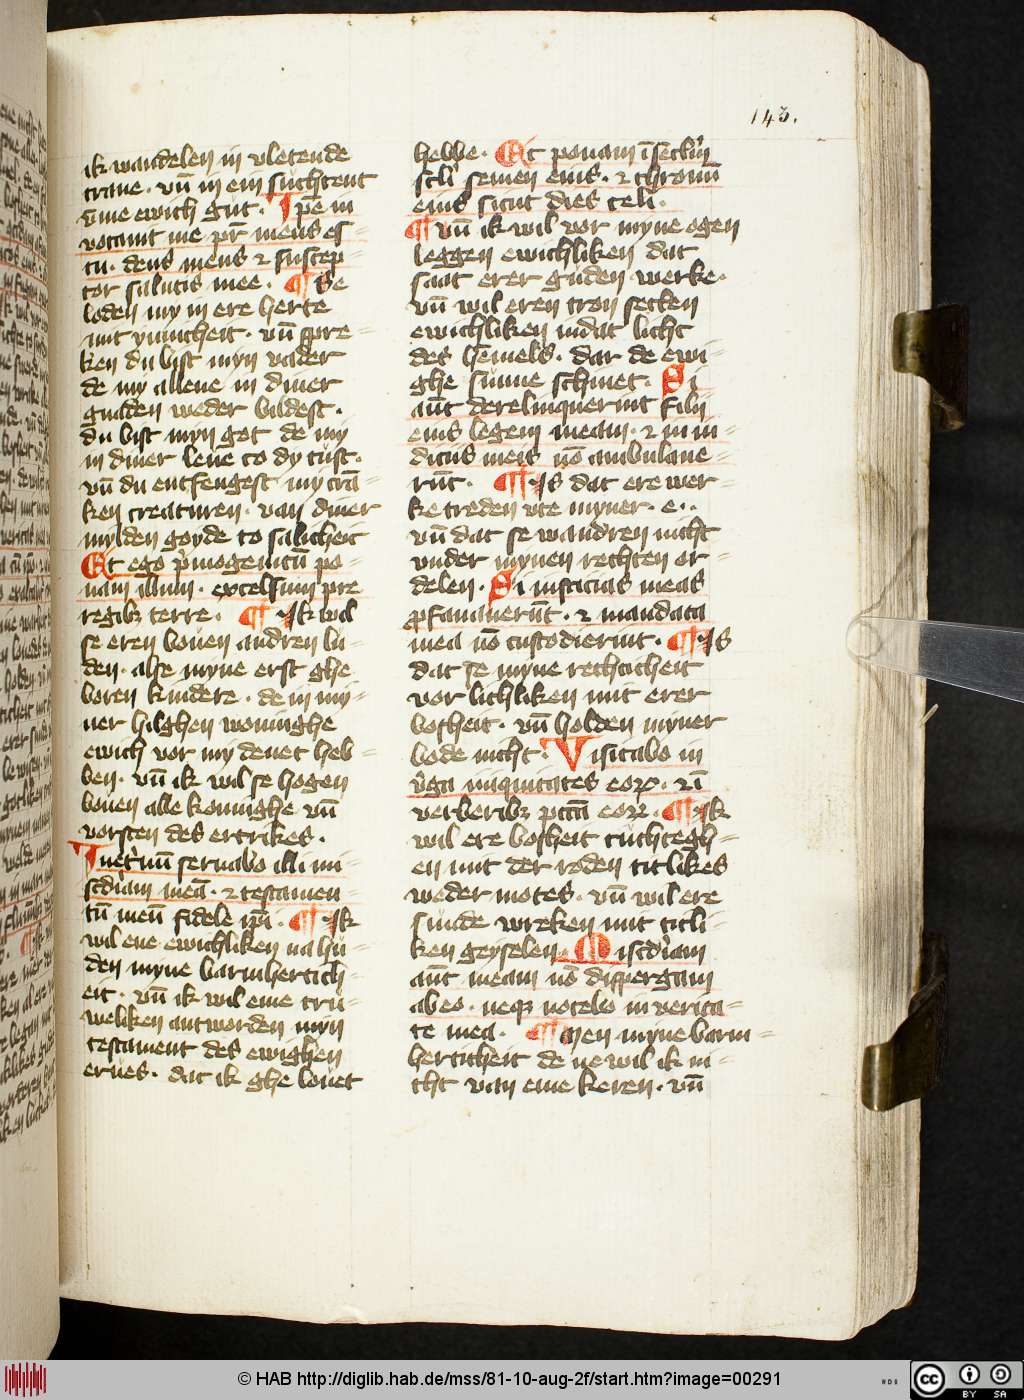 143.
ik wandelen in vletende
trane · vn̄ in ein suchtent
vme ewich gut · Ipe in
vocauit me pr̄ meus es
tu · deus meus ⁊ suscep-
tor salutis mee · ¶ Se
loden my in ere herte
mit ynnicheit · vn̄ spre-
ken du bist myn vader
de my allene in diner
gnaden weder bildest ·
du bist myn got de my
in diner leue to dy tust ·
vn̄ du entfengest my crā-
ken creaturen · van diner
mylden goyde to salicheit
Et ego p̓mogenitū po-
nam illum · excelsum pre
regibꝫ terre · ¶ Ik wil
se eren bouen andren lu-
den · alse myne erst ghe
boren kindere · de in my-
ner hilghen woninghe
ewich vor my denet heb-
ben · vn̄ ik wil se hogen
bouen alle koninghe vn̄
vorsten des ertrikes ·
Inet̓nū seruabo illi mi-
scd̓iam meā · ⁊ testamen-
tū meū fidele ip̄i · ¶ Ik
wil ene ewichliken na hu-
den myne barmhertich-
eit · vn̄ ik wil eme tru-
weliken antworden myn
testament des ewighen
erues · dat ik ghe louet
hebbe · Et ponam ī sec̄lm̄
sc̄li semen eius · ⁊ thronū
eius sicut dies celi ·
¶ Vn̄ ik wil vor myne ogen
leggen ewichliken dat
saat erer guden werke ·
vn̄ wil eren tron setten
ewichliken in dat licht
des hemels · dar de ewi-
ghe sunne schinet · Si
aūt derelinquerint filij
eius legem meam · ⁊ in iu-
dicijs meis nō ambulaue-
rūt · ¶ Is dat ere wer-
ke treden vte myner · e ··
vn̄ dat se wandren nicht
vnder mynen rechten or-
delen · Si iusticias meas
ꝓfanauerūt · ⁊ mandata
mea nō custodierint · ¶ Is
dat se myne rechticheit
vor lichliken mit erer
bosheit · vn̄ holden myner
bode nicht · Visitabo in
v̓ga iniquitates eoꝝ · ⁊ ī
verberibꝫ pctā eoꝝ · ¶ Ik
wil ere bosheit tuchtegh-
en mit der roden titlikes
weder motes · vn̄ wil ere
sunde wreken mit titli-
ken geyselen · Miscd̓iam
aūt meam nō dispergam
ab eo · neqꝫ nocebo in verita-
te mea · ¶ Men myne barm-
herticheit de ne wil ik ni-
cht van eme keren · vn̄
© HAB http://diglib.hab.de/mss/81-10-aug-2f/start.htm?image=00291
BY SA